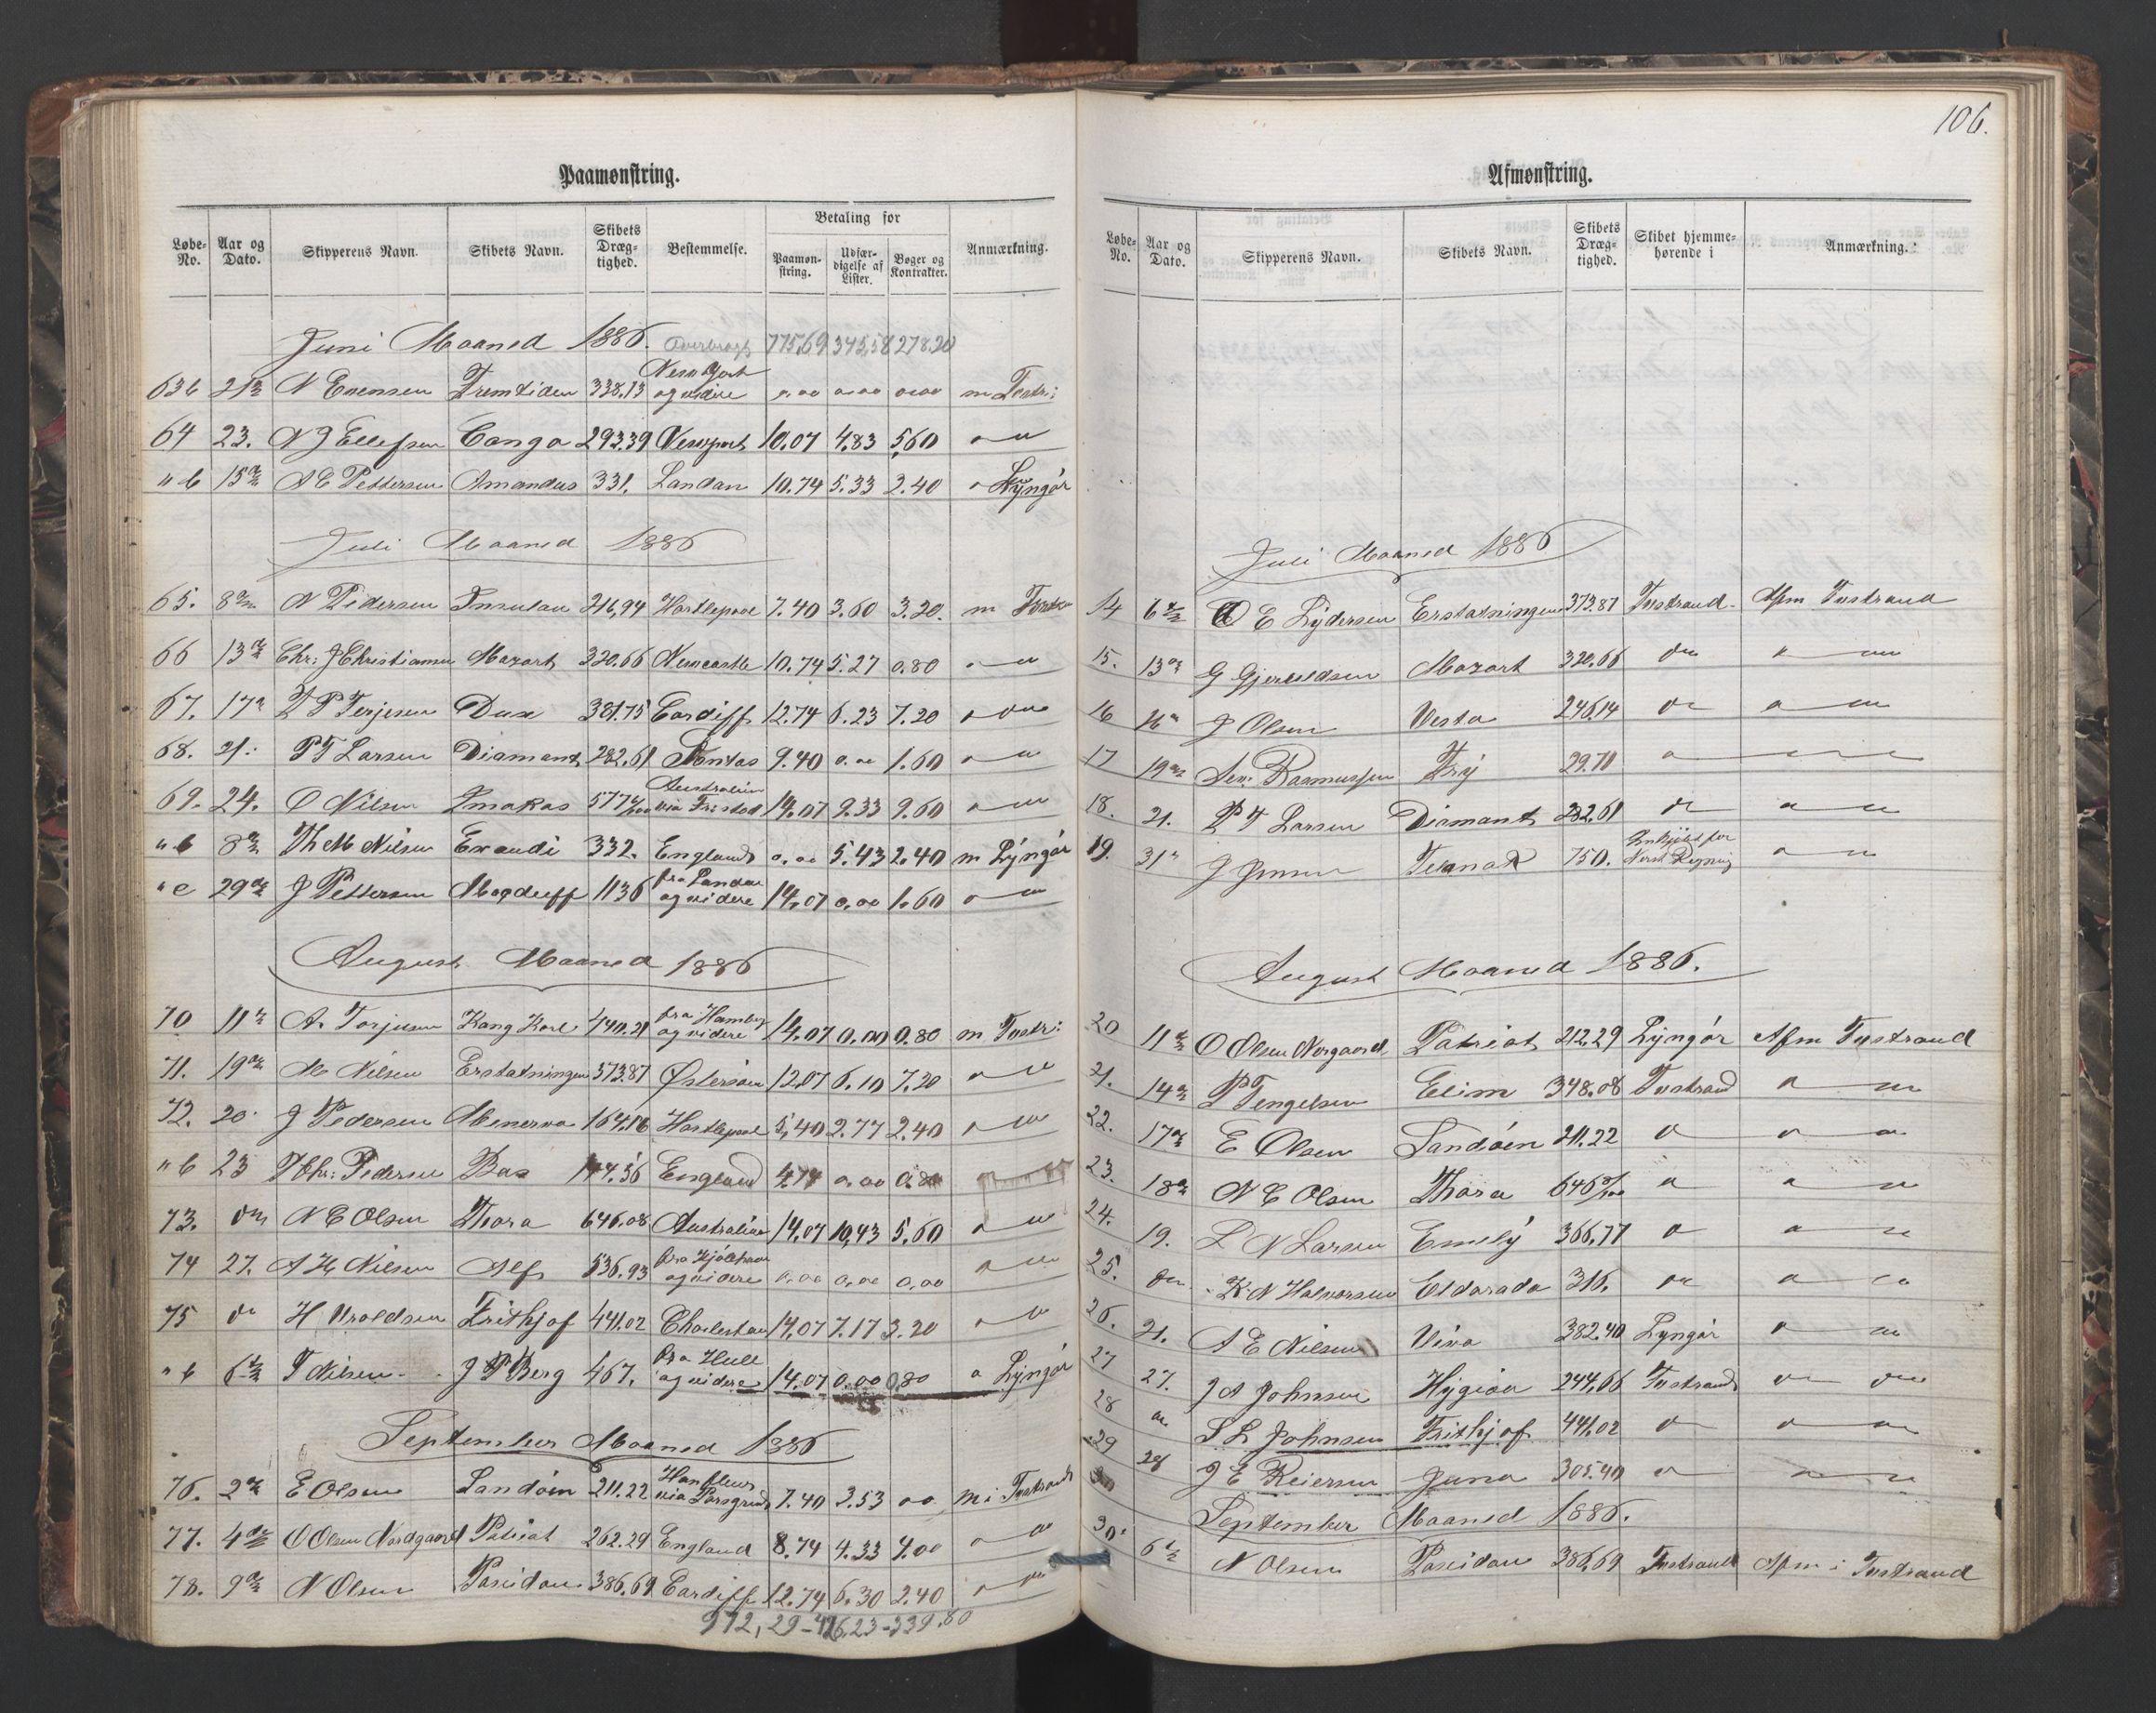 106.
Paamønstring.
Løbe-No. Aar og Dato. Skipperens Navn. Skibets Navn. Skibets Dræg-tighed. Bestemmelse. Betaling for Paamøn-string. Udfær-digelse af Lister. Bøger og Kontrakter. Anmærkning.
Juni Maaned 1886. Overbragt 775,69 345,58 278.20
63 b 21 N Evensen Fremtiden 338.13 New York og videre 0.00 0.00 0.00 m
64 23. N J Ellefsen Conga 293.39 Newport 10.07 4.83 5,60
" b 15 A E Pettersen Amandus 331. London 10.74 5.33 2.40 Lyngör
Juli Maaned 1886
65. 8 N Pedersen Insulan 216,94 Hartlepool 7.40 3.60 3.20. m
66 13 Chr: J Christiansen Mozart 320.66 Newcastle 10.74 5.27 0.80
67. 17 P Terjesen Dux 381.75 Cardiff 12.74 6.23 7.20
68. 21. P T Larsen Diamant 282.61 9.40 0.00 1.60
69. 24. O Nilsen 577 Australien via 14.07 9.33 9.60
" b 3 Th M Nilsen Exaudi 332. England 0.00 5.43 2.40 m Lyngör
" c 29 J Pettersen Magduff 1136 fra London og videre 14.07 0.00 1.60
August Maaned 1886
70 11 A. Torjusen Kong Karl 440.21 fra Hamburg og videre 14.07 0.00 0.80 m
71. 19 M Nilsen Erstatningen 373.87 Østersöen 12.07 6.10 7.20
72. 20 J Pedersen Menerva 164.16 Hartlepool 5,40 2.77 2.40
" b 23 Chr: Pedersen 144.56 England 4.74 0.00 0.80
73. N E Olsen Thora 646.08 Australien 14.07 10,43 5.60
74 27. A H Nilsen Alf 536.93 og videre 0.00 0.00 0.00
75 H Uroldsen Frithjof 441.02 Charlestown 14.07 7.17 3.20
" b 6 T Nilsen J P Berg 467. fra Hull og videre 14.07 0.00 0,80 Lyngör
September Maaned 1886
76. 2 E Olsen Sandöen 211.22 via Porsgrund 7.40 3.53 00 m i
77. 4 O Olsen Nordgaard Patriot 262.29 England 8.74 4.33 4.00
78. 9 N Olsen Poseidon 386.69 Cardiff 12.74 6.30 2.40
972,29 - 426.23 - 339.80
Afmønstring.
Løbe-No. Aar og Dato. Skipperens Navn. Skibets Navn. Skibets Dræg-tighed. Skibet hjemme-hørende i Anmærkning.
Juli Maaned 1886
14 6 O E Lydersen Erstatningen 373.87 Tvestrand. Afm Tvestrand
15. 13 G Gjeruldsen Mozart 320.66
16 16 J Olsen Vesta 246,14
17 19 Rasmussen Frij 29.70
18. 21. P T Larsen Diamant 282.61
19. 31 J Jensen 750. Indkjöbt for Norsk Regning
August Maaned 1886.
20 11 O Olsen Norgaard Patriot 212.29 Lyngör Afm Tvestrand
21. 14 P Tengelsen Elim 348.08 Tvestrand
22. 17 E Olsen Sandöen 211.22
23. 18 N E Olsen Thora 646
24. 19. L N Larsen Emely 366,77
25. K N Halvorsen Eldorado 316.
26. 21. A E Nilsen Viva 382.40 Lyngör
27 27. J A Johnsen Hygiea 244,66 Tvestrand
28 S L Johnsen Frithjof 441.02
29 28 J E Reiersen Juno 305.40
September Maaned 1886.
30. 6 N Olsen Poseidon 386,69 Tvestrand Afm i Tvestrand